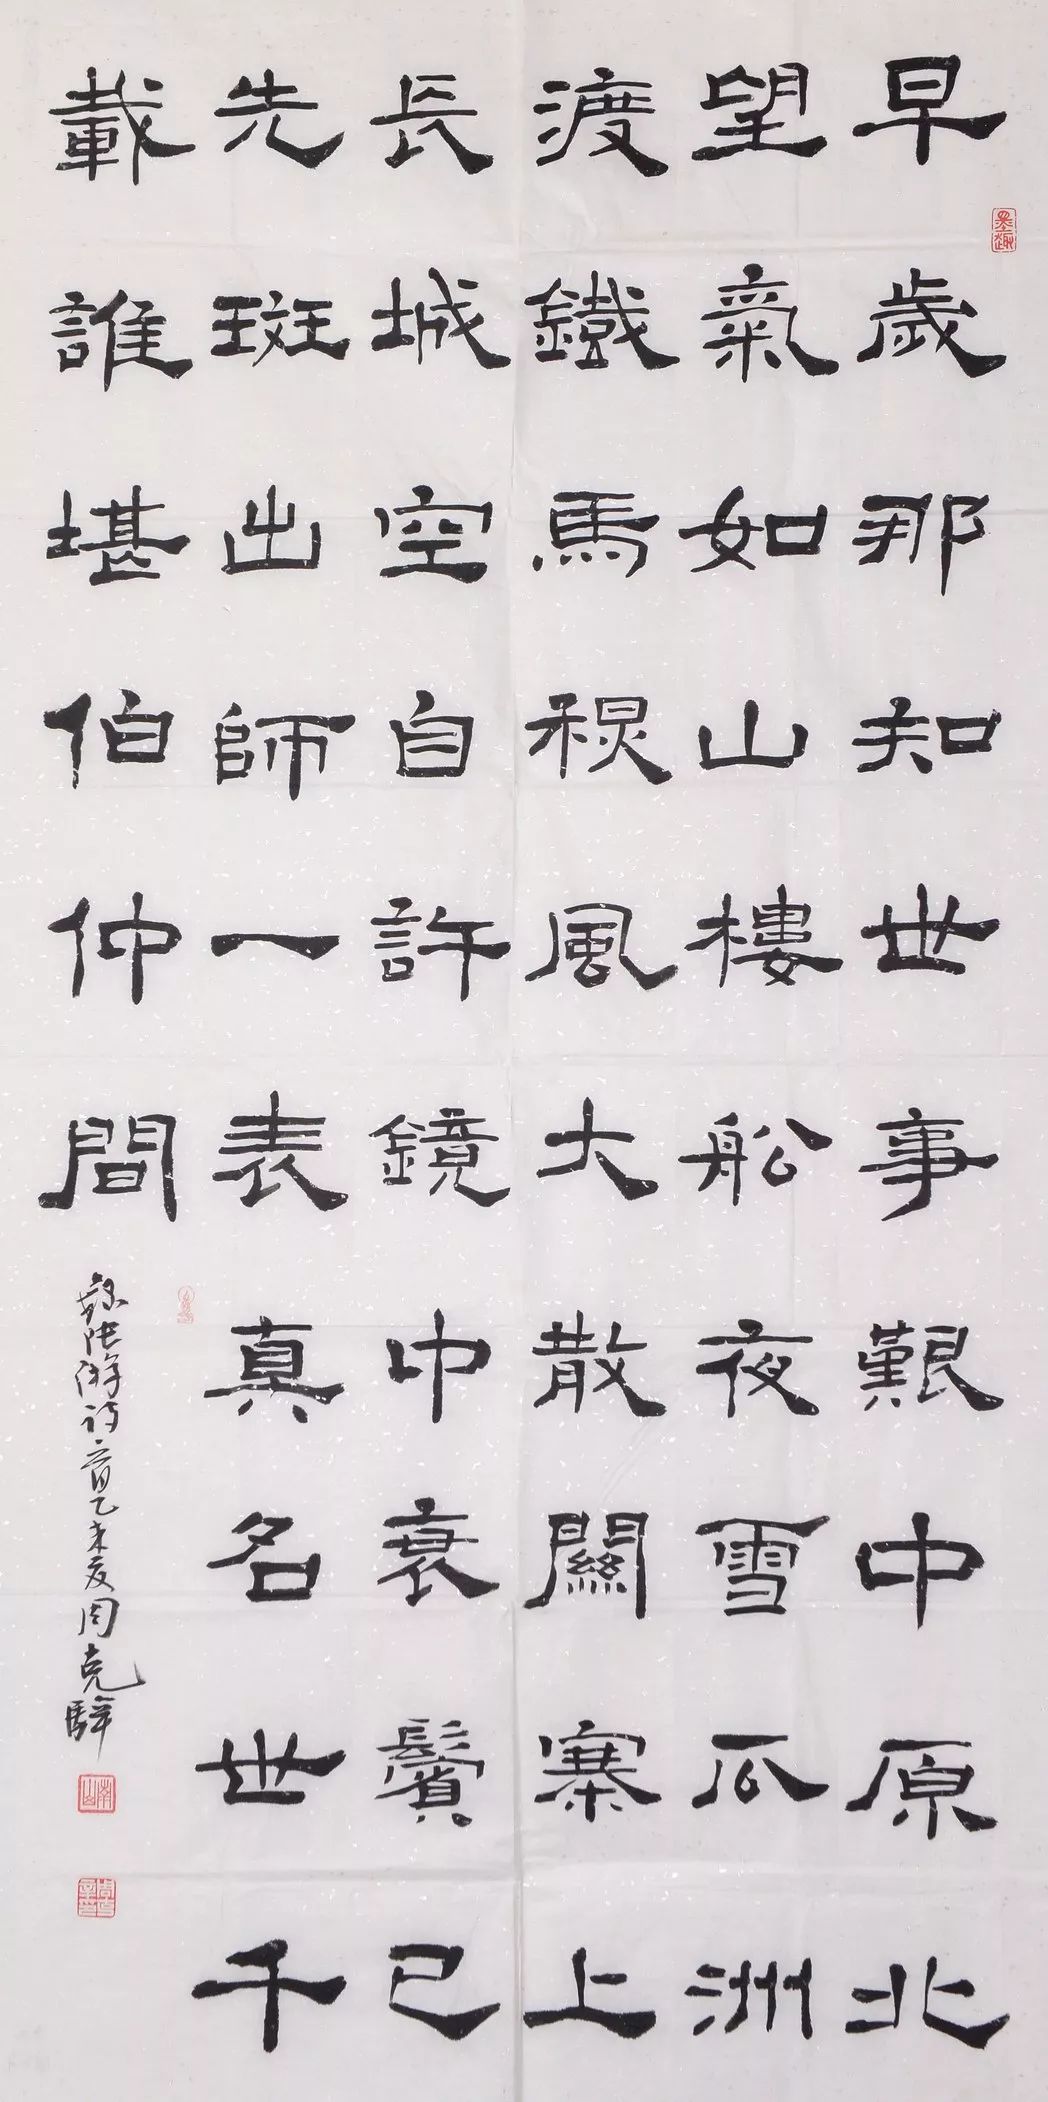 早歲那知世事艱中原北
望氣如山樓船夜雪瓜洲
渡鐵馬秋風大散關寨上
長城空自許鏡中衰鬢已
先斑出師一表真名世千
載誰堪伯仲間
錄陸游詩一首乙未夏周克
墨趣